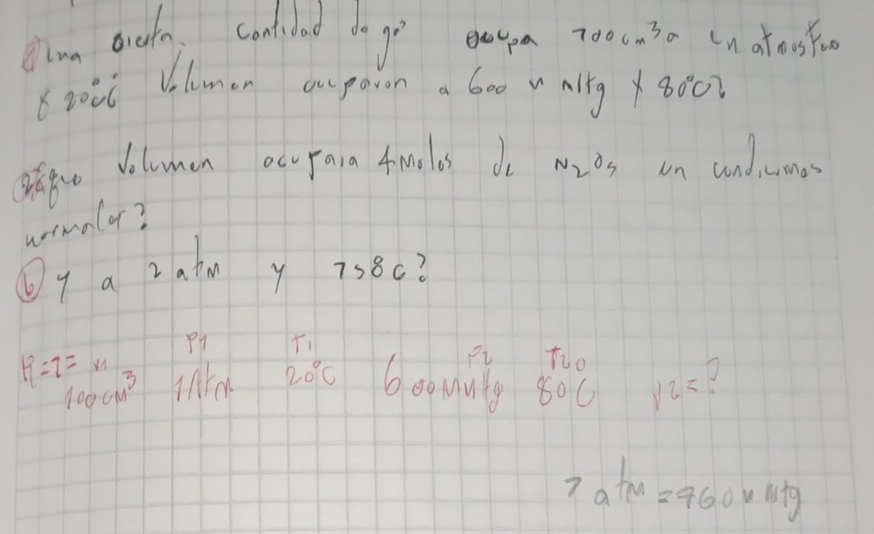 ① una cierta cantidad de gas ocupa 100cm³ a 1 atmosfera
y 20°C ¿ Volumen ocuparan a 600 mmHg y 80°C?
② que Volumen ocuparia 4 moles de N2O5 en condiciones
normales?
ⓑ y a 2 atm y 758C?
R=1= V1 P1 T1 P2 T2
100cm³ 1Atm 20°C 600MmHg 80C V2=?
1 atm = 760mmHg